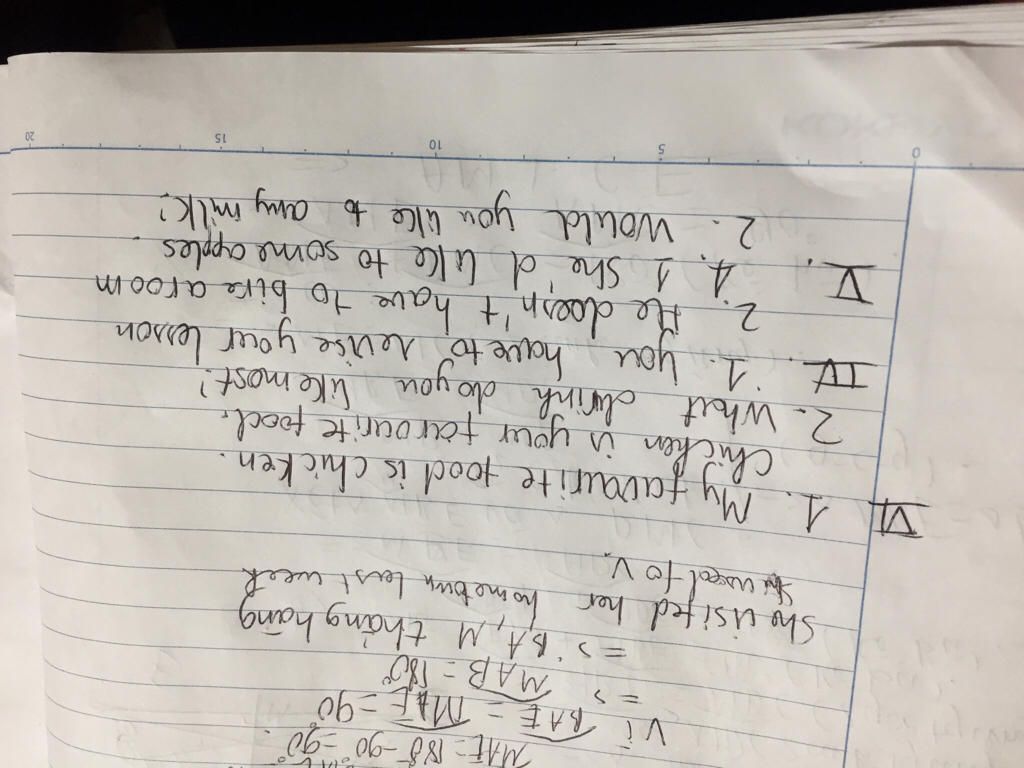 MAE = 180° - 90° = 90°
Vì BAE = MAE = 90°
=> MAB = 180°
=> B, A, M thẳng hàng
She visited her hometown last week
used to V.
VI 1. My favourite food is chicken.
Chicken is your favourite food.
2. What drink do you like most?
IV. 1. You have to revise your lesson
2. He doesn't have to bire a room
V. 1. She'd like to some apples.
2. Would you like to any milk?
0 5 10 15 20